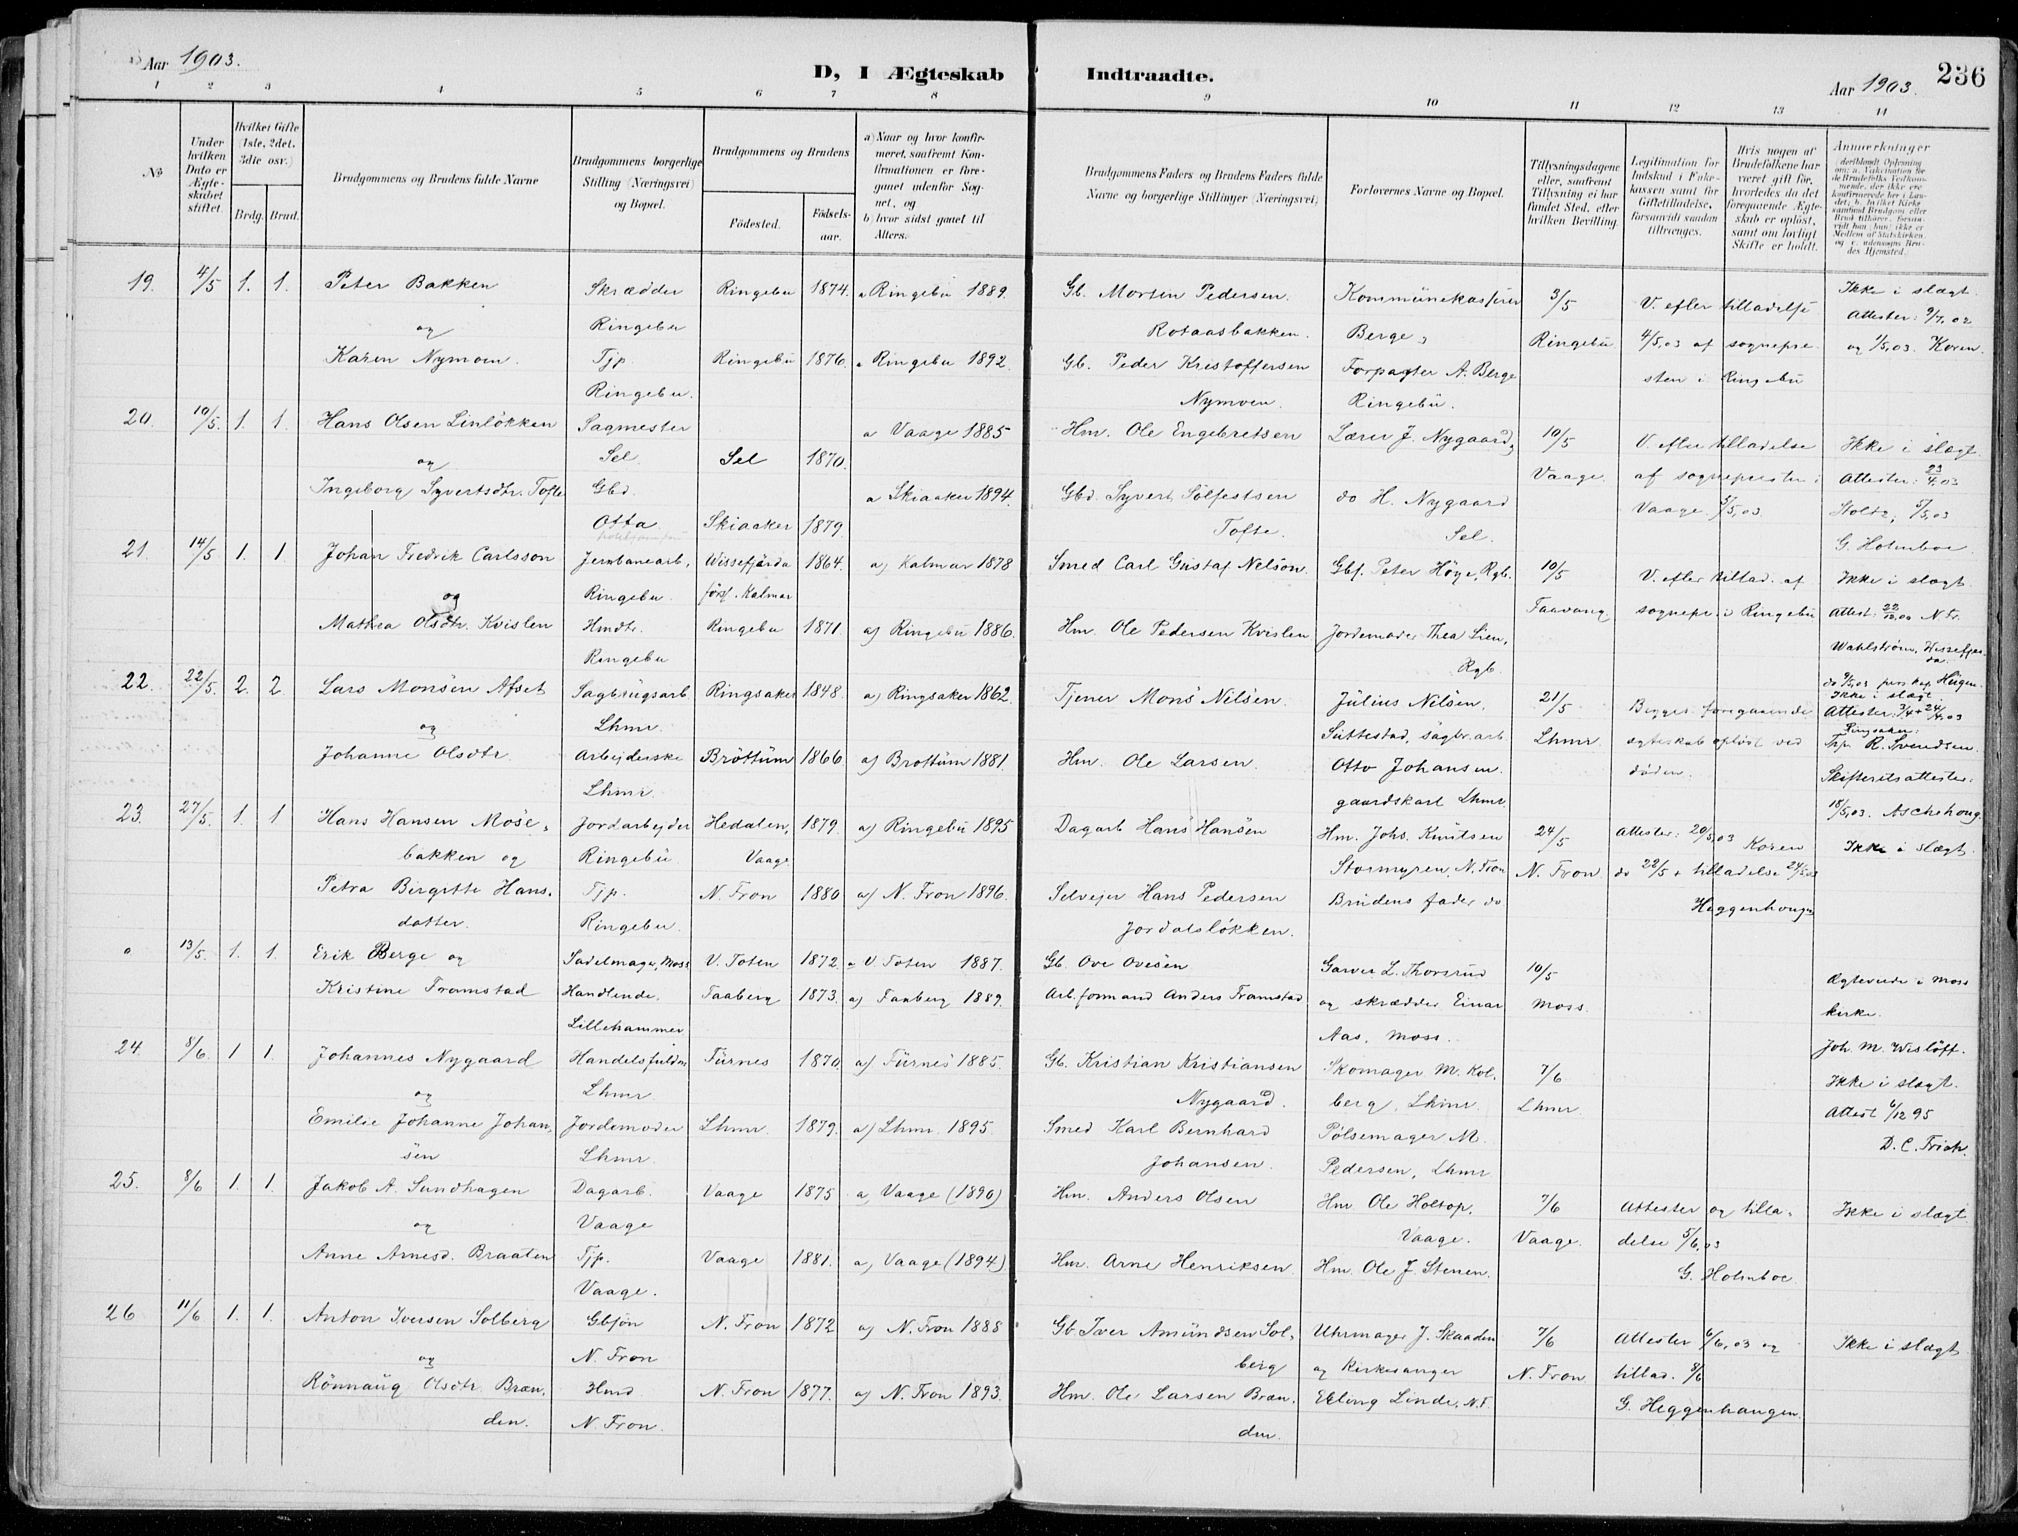 Aar 1903.
D, I Ægteskab Indtraadte.
Aar 1903.
236
1 2 3 4 5 6 7 8 9 10 11 12 13 14
No
Under hvilken Dato er Ægteskabet stiftet.
Hvilket Gifte (1ste, 2det, 3die osv.)
Brdg. Brud.
Brudgommens og Brudens fulde Navne
Brudgommens borgerlige Stilling (Næringsvei) og Bopæl.
Brudgommens og Brudens
Fødested. Fødselsaar.
a) Naar og hvor konfirmeret, saafremt Konfirmationen er foregaaet udenfor Sognet, og
b) hvor sidst gaaet til Alters.
Brudgommens Faders og Brudens Faders fulde Navne og borgerlige Stillinger (Næringsvei)
Forlovernes Navne og Bopæl.
Tillysningsdagene eller, saafremt Tillysning ei har fundet Sted, efter hvilken Bevilling.
Legitimation for Indskud i Enkekassen samt for Giftetilladelse, forsaavidt saadan tiltrænges.
Hvis nogen af Brudefolkene har været gift før, hvorledes da det foregaaende Ægteskab er opløst, samt om lovligt Skifte er holdt.
Anmærkninger
19. 4/5 1. 1. Peter Bakken Skrædder Ringebu 1874. a Ringebu 1889. Gb. Morten Pedersen Kommunekasserer 3/5 V. efter tilladelse Ikke i slægt.
og Ringebu Rotaasbakken. Berge, Ringebu 4/5,03 af sognepre- Attester: 9/7,02
Karen Nymoen. Tjp. Ringebu 1876. a Ringebu 1892. Gb. Peder Kristoffersen Forpagter A. Berge sten i Ringebu og 1/5,03. Koren.
Ringebu. Nymoen. Ringebu.
20. 10/5. 1. 1. Hans Olsen Linløkken Sagmester a Vaage 1885 Hm. Ole Engebretsen Lærer J. Nygaard, 10/5 V. efter tilladelse Ikke i slægt.
og Sel. Sel 1870. Vaage. af sognepresten i Attester: 23/4,03
Ingeborg Syvertsdtr. Tofte Gbd. a Skiaaker 1894. Gbd. Syvert Sølfestsen do H. Nygaard Vaage 5/5,03. Holtz, 5/5,03
Otta. Skiaaker 1879. Tofte. Sel. G. Holmboe.
21. 14/5 1. 1. Johan Fredrik Carlsson Jernbanearb. Wissefjärda 1864. a) Kalmar 1878 Smed Carl Gustaf Nelson. Gbf. Peter Høye, Rgb. 10/5 V. efter tillad. af Ikke i slægt.
og Ringebu. förs. Kalmar Faavang sognepr. i Ringebu
Mathea Olsdtr. Kvislen Hmdtr. Ringebu 1871. a) Ringebu 1886. Hm. Ole Pedersen Kvislen Jordemoder Thea Lien,
Ringebu Rgb. Wahlström, Wissefjärda.
22. 22/5. 2. 2 Lars Monsen Afset Sagbrugsarb Ringsaker 1848. a) Ringsaker 1862. Tjener Mons Nilsen. Julius Nilsen, 21/5 Begges foregaaende Ikke i slægt.
og Lhmr. Suttestad, sagbr.arb. Lhmr. ægteskab opløst ved Attester: 3/4 + 24/4,03
Johanne Olsdtr Arbejderske Brøttum 1866. a) Brøttum 1881. Hm. Ole Larsen. Otto Johansen. døden. R. Svendsen.
Lhmr. gaardskarl Lhmr Skifteretsattester:
18/5,03. Aschehoug
23. 27/5. 1. 1 Hans Hansen Mose- Jordarbejder Hedalen, 1879. a) Ringebu 1895 Dagarb Hans Hansen Hm. Johs. Knutsen 24/5 Attester: 20/5,03 Koren Ikke i slægt.
bakken og Ringebu. Vaage Stormyren, N. Fron N. Fron do 22/5 + tilladelse 24/5,03
Petra Bergitte Hans- Tjp. N. Fron 1880 a) N. Fron 1896. Selvejer Hans Pedersen Brudens fader do Heggenhougen
datter. Ringebu. Jordalsløkken.
0 13/5. 1. 1. Erik Berge og Sadelmager, Moss V. Toten 1872. a V. Toten 1887. Gb. Ove Ovesen Garver L. Thorsrud 10/5 Ægteviede i Moss
Kristine Tramstad Handlende. Faaberg 1873. a) Faaberg 1889. Arb.formand Anders Tramstad og skrædder Einar Moss. kirke.
Lillehammer Aas, Moss. Joh. M. Wisløff.
24. 8/6. 1 1. Johannes Nygaard Handelsfuldm. Furnes 1870. a) Furnes 1885. Gb. Kristian Kristiansen Skomager M. Kol- 7/6 Ikke i slægt.
og Lhmr. Nygaard. berg, Lhmr. Lhmr. Attest 6/12 95
Emilie Johanne Johan- Jordemoder Lhmr. 1879. a) Lhmr. 1895. Smed Karl Bernhard Pølsemager M. D. C. Frich.
sen Lhmr. Johansen. Pedersen, Lhmr
25. 8/6 1. 1. Jakob A. Sundhagen Dagarb. Vaage 1875 a) Vaage (1890) Hm. Anders Olsen Hm Ole Holtop, 7/6 Attester og tilla- Ikke i slægt
og Vaage Vaage. Vaage. delse 5/6,03
Anne Arnesd. Braaten Tjp. Vaage 1881. a) Vaage (1894) Hm. Arne Henriksen. Hm. Ole J. Stenen. G. Holmboe
Vaage.
26 11/6 1. 1. Anton Iversen Solberg Gbsøn N. Fron 1872 a) N. Fron 1888 Gb Iver Amundsen Sol- Uhrmager J. Skaaden 7/6 Attester 6/6,03 og Ikke i slægt
og N. Fron berg og kirkesanger N. Fron tillad. 8/6
Rønnaug Olsdtr. Bræn- Hmd N. Fron 1877. a) N. Fron 1893. Hm. Ole Larsen Bræn- Erling Linde, N. F. G. Heggenhaugen.
den. N. Fron. den.